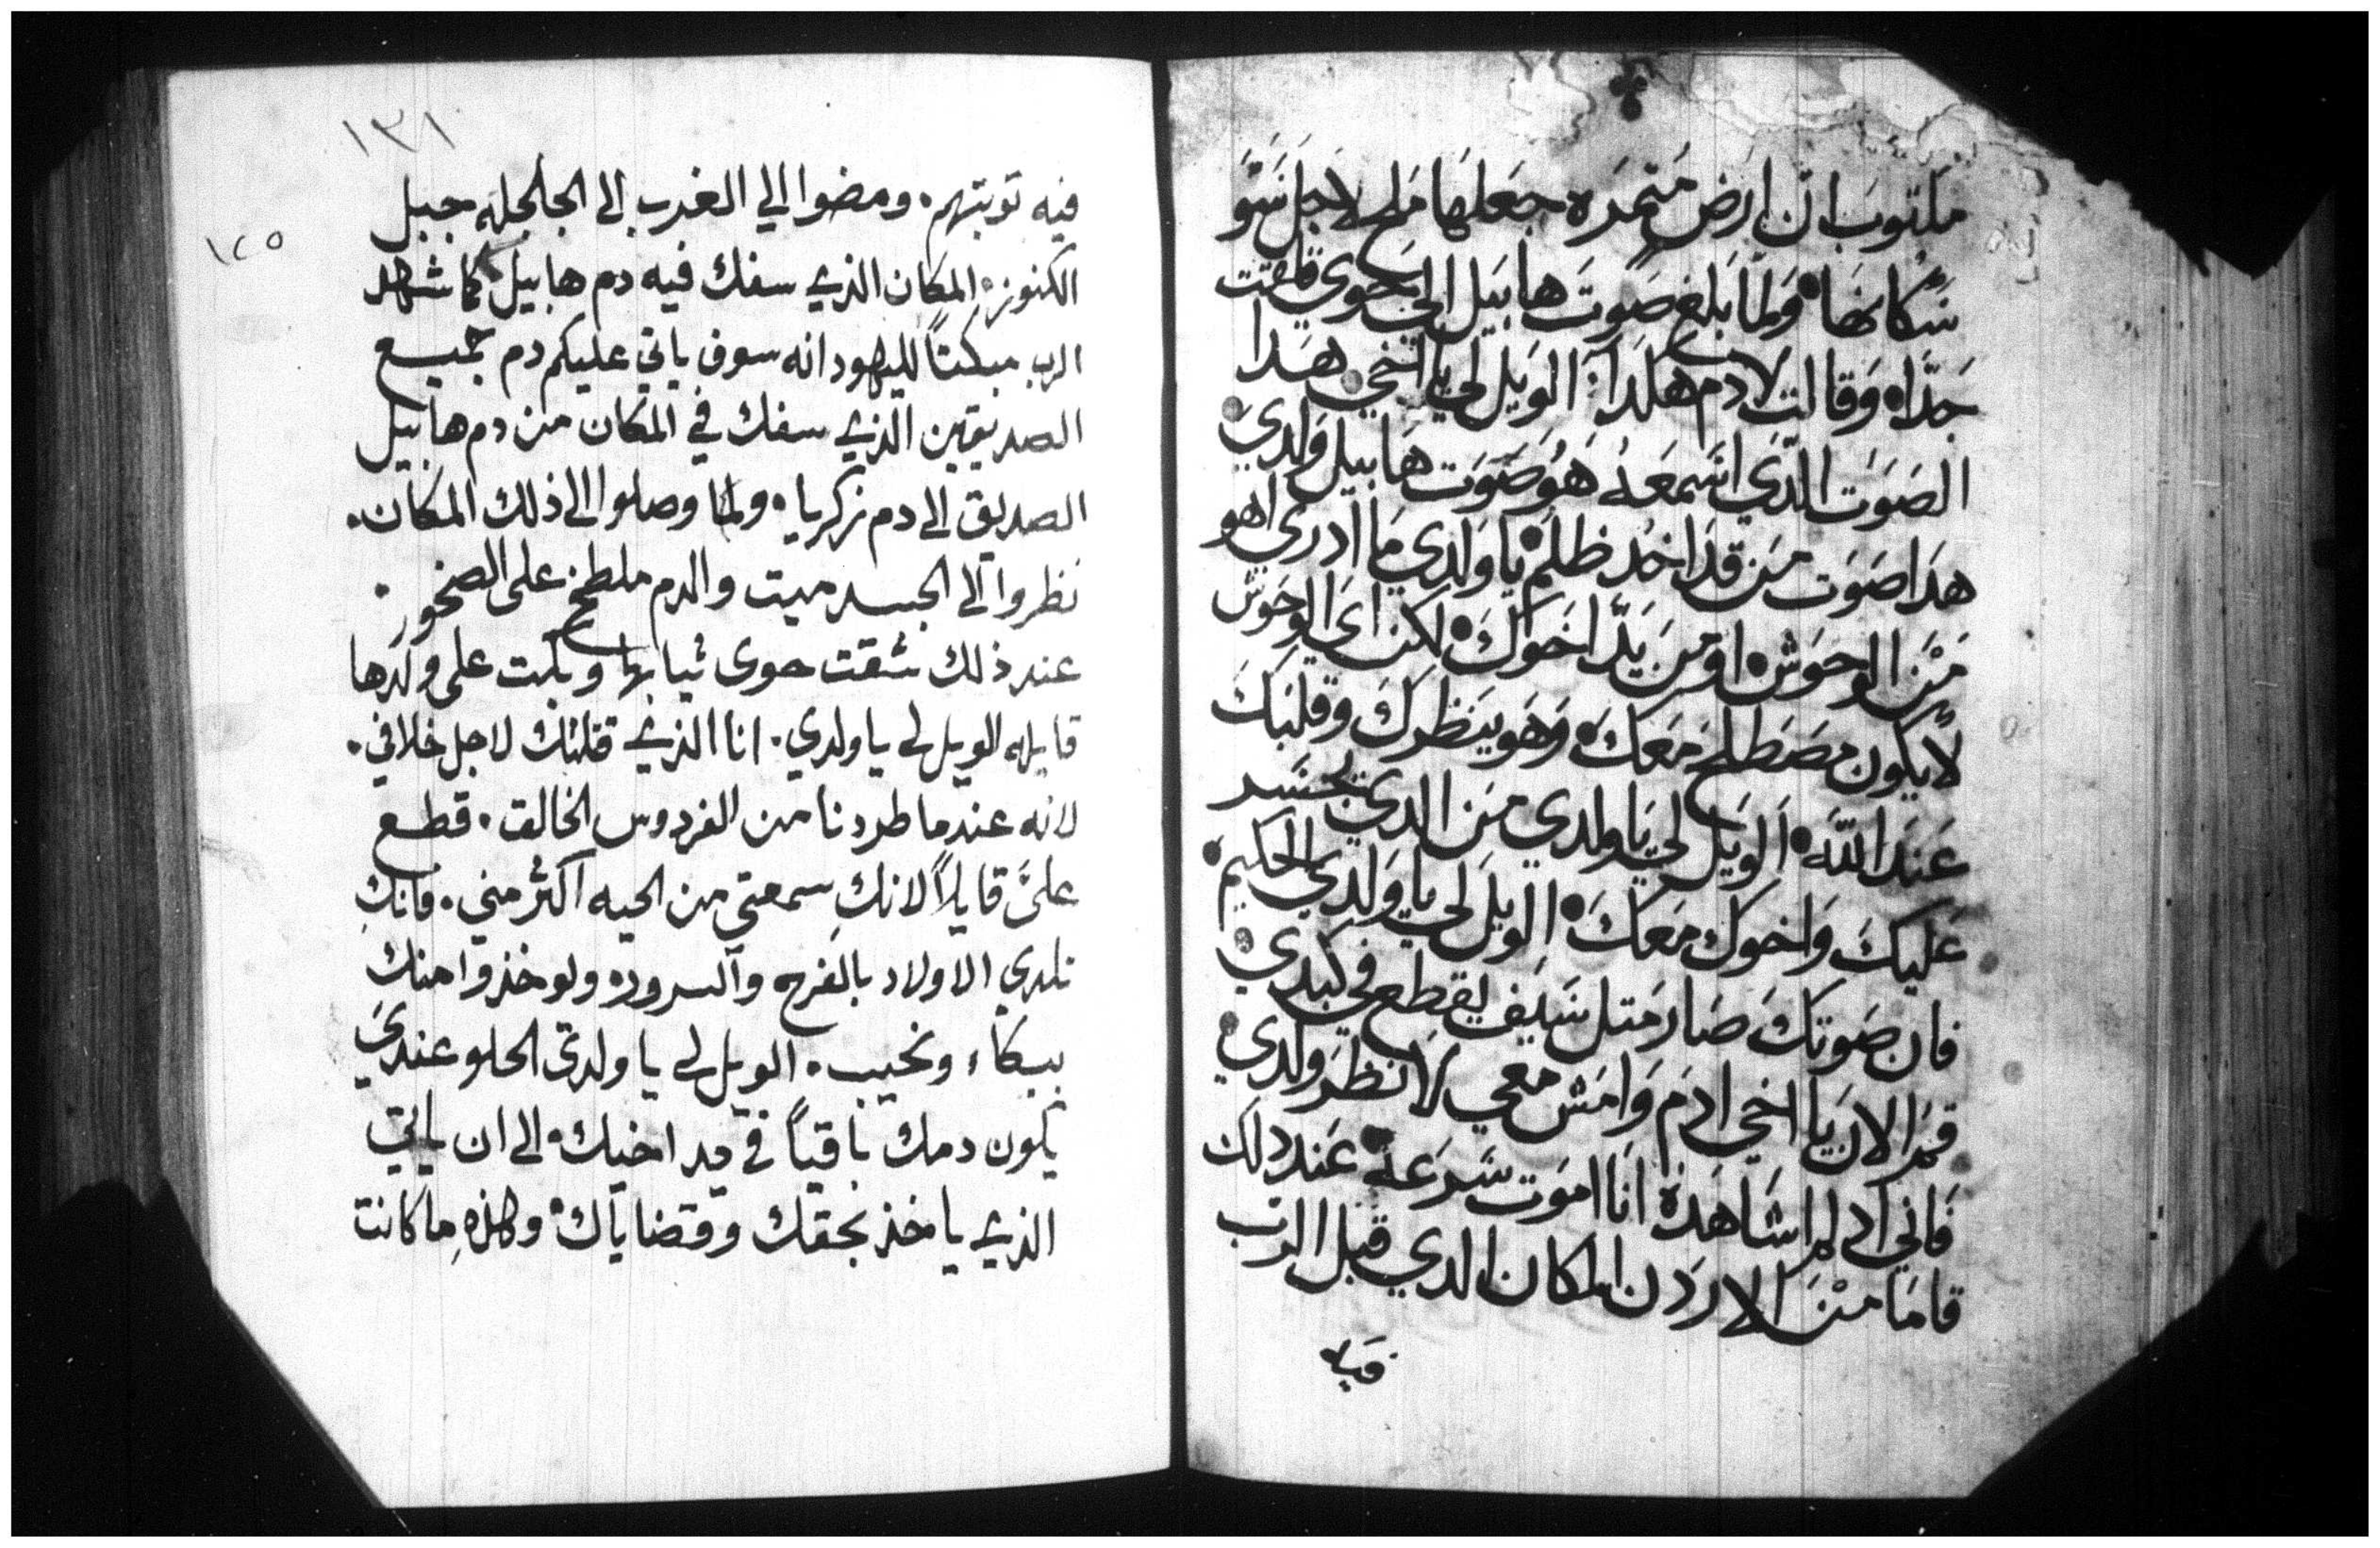 مكتوب ان ارض متمره جعلها ملح لاجل شو
سكانها ولما بلغ صوت هابيل الي حوي قلقت
جدا وقالت لادم هكدا الويل لي يا اخي هدا
الصوت الدي اسمعه هو صوت هابيل ولدي
هدا صوت من قد اخد ظلم يا ولدي ما ادري اهو
من الوحوش او من يد اخوك لكن اي الوحوش
لا يكون مصطلح معك وهو ينظرك وقلبك
عند الله الويل لي يا ولدي من الدي تجسر
عليك واخوك معك الويل لي يا ولدي الحكيم
فان صوتك صار متل سيف يقطع في كبدي
قم الان يا اخي ادم وامش معي لانظر ولدي
فاني اد لم اشاهده انا اموت سرعه عند دلك
قاما من الاردن المكان الدي قبل الرب
فيه
١٣١
١٢٥
فيه توبتهم. ومضوا الي الغرب الى الجلجله جبل
الكنوز المكان الذي سفك فيه دم هابيل كما شهد
الرب مبكتاً لليهود انه سوف ياتي عليكم دم جميع
الصديقين الذي سفك في المكان من دم هابيل
الصديق الى دم زكريا. ولما وصلوا الى ذلك المكان.
نظروا الى الجسد ميت والدم ملطخ على الصخور.
عند ذلك شقت حوى ثيابها وبكت على ولدها
قايله الويل لي يا ولدي. انا الذي قتلتك لاجل خلافي.
لانه عندما طردنا من الفردوس الخالق. قطع
عليَّ قايلاً لانكِ سمعتي من الحيه اكثر مني. فانكِ
تلدي الاولاد بالفرح والسرور ولوخذوا منك
ببكاء ونحيب. الويل لي يا ولدي الحلو عندي
يكون دمك باقياً في يد اخيك الى ان ياتي
الذي ياخذ بحقك وقضاياك وهذهِ ما كانت